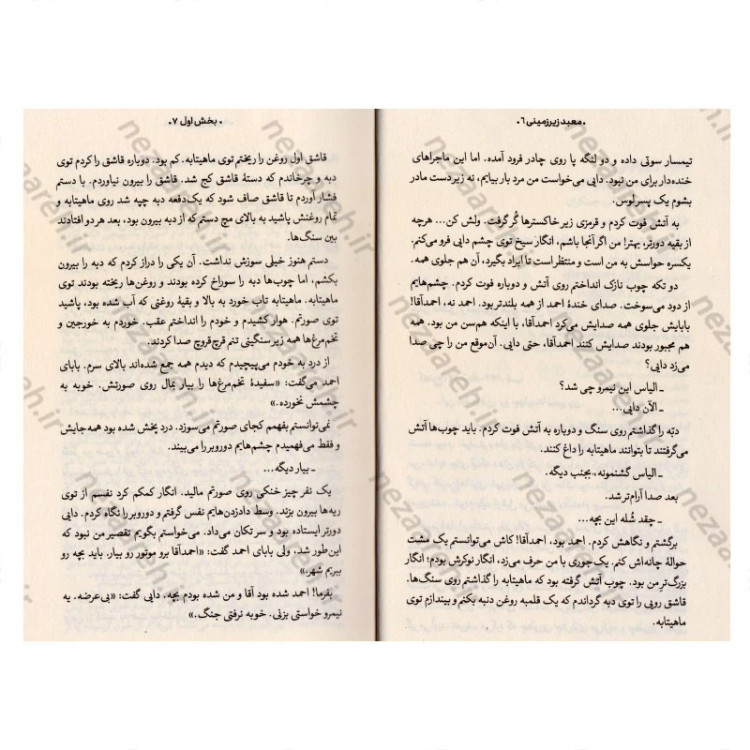 ۰ معبد زیرزمینی ۶۰
تیمسار سوتی داده و دو لنگه پا روی چادر فرود آمده. اما این ماجراهای
خنده‌دار برای من نبود. دایی می‌خواست من مرد بار بیایم، نه زیردست مادر
بشوم یک پسر لوس.
به آتش فوت کردم و قرمزی زیر خاکسترها گُر گرفت. ولش کن... هرچه
از بقیه دورتر، بهتر! من اگر آنجا باشم، انگار سیخ توی چشم دایی فرو می‌کنم.
یکسره حواسش به من است و منتظر است تا ایراد بگیرد، آن هم جلوی همه.
دو تکه چوب نازک انداختم روی آتش و دوباره فوت کردم. چشم‌هایم
از دود می‌سوخت. صدای خندهٔ احمد از همه بلندتر بود. احمد نه، احمدآقا!
بابایش جلوی همه صدایش می‌کرد احمدآقا، با اینکه هم‌سن من بود. بقیه
هم مجبور بودند صدایش کنند احمدآقا، حتی دایی. آن‌موقع من را چی صدا
می‌زد دایی؟
ـ الیاس این نیمرو چی شد؟
ـ الآن دایی...
دبّه را گذاشتم روی سنگ و دوباره به آتش فوت کردم. باید چوب‌ها آتش
می‌گرفتند تا بتوانند ماهیتابه را داغ کنند.
ـ الیاس گشنمونه، بجنب دیگه.
بعد صدا آرام‌تر شد.
ـ چقد شُله این بچه...
برگشتم و نگاهش کردم. احمد بود، احمدآقا! کاش می‌توانستم یک مشت
حوالهٔ چانه‌اش کنم. یک جوری با من حرف می‌زد، انگار نوکرش بودم؛ انگار
بزرگ‌تر من بود. چوب آتش گرفته بود که ماهیتابه را گذاشتم روی سنگ‌ها.
قاشق رویی را توی دبه گرداندم که یک قلمبه روغن دنبه بکنم و بیندازم توی
ماهیتابه.
۰ بخش اول ۷۰
قاشق اول روغن را ریختم توی ماهیتابه. کم بود. دوباره قاشق را کردم توی
دبه و چرخاندم که دستهٔ قاشق کج شد. قاشق را بیرون نیاوردم. با دستم
فشار آوردم تا قاشق صاف شود که یک‌دفعه دبه چپه شد روی ماهیتابه و
تمام روغنش پاشید به بالای مچ دستم که از دبه بیرون بود، بعد هر دو افتادند
بین سنگ‌ها.
دستم هنوز خیلی سوزش نداشت. آن یکی را دراز کردم که دبه را بیرون
بکشم، اما چوب‌ها دبه را سوراخ کرده بودند و روغن‌ها ریخته بودند توی
ماهیتابه. ماهیتابه تاب خورد به بالا و بقیهٔ روغنی که آب شده بود، پاشید
توی صورتم. هوار کشیدم و خودم را انداختم عقب. خوردم به خورجین و
تخم‌مرغ‌ها همه زیر سنگینی تنم قرچ‌قروچ صدا کردند.
از درد به خودم می‌پیچیدم که دیدم همه جمع شده‌اند بالای سرم. بابای
احمد می‌گفت: «سفیدهٔ تخم‌مرغ‌ها را بیار بمال روی صورتش. خوبه به
چشمش نخورده.»
نمی‌توانستم بفهمم کجای صورتم می‌سوزد. درد پخش شده بود همه جایش
و فقط می‌فهمیدم چشم‌هایم دوروبر را می‌بیند.
ـ بیار دیگه...
یک نفر چیز خنکی روی صورتم مالید. انگار کمکم کرد نفسم از توی
ریه‌ها بیرون بزند. وسط دادزدن‌هایم نفس گرفتم و دوروبر را نگاه کردم. دایی
دورتر ایستاده بود و سر تکان می‌داد. می‌خواستم بگویم تقصیر من نبود که
این‌طور شد، ولی بابای احمد گفت: «احمدآقا برو موتور رو بیار. باید بچه رو
ببریم شهر.»
بفرما! احمد شده بود آقا و من شده بودم بچه. دایی گفت: «بی‌عرضه. یه
نیمرو خواستی بزنی. خوبه نرفتی جنگ.»
nezaareh.ir
nezaareh.ir
nezaareh.ir
nezaareh.ir
nezaareh.ir
nezaareh.ir